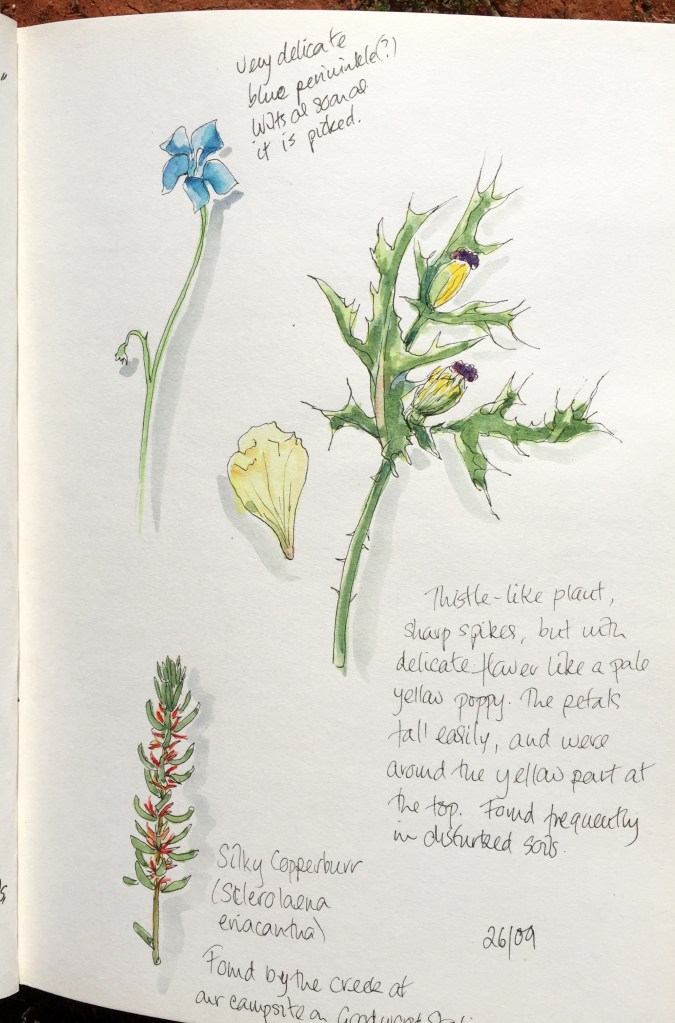 Very delicate
blue periwinkle(?)
Wilts as soon as
it is picked.
Thistle-like plant,
sharp spikes, but with
delicate flower like a pale
yellow poppy. The petals
fall easily, and were
around the yellow part at
the top. Found frequently
in disturbed soils.
Silky Copperburr
(Sclerolaena
eriacantha)
26/09
Found by the creek at
our campsite on